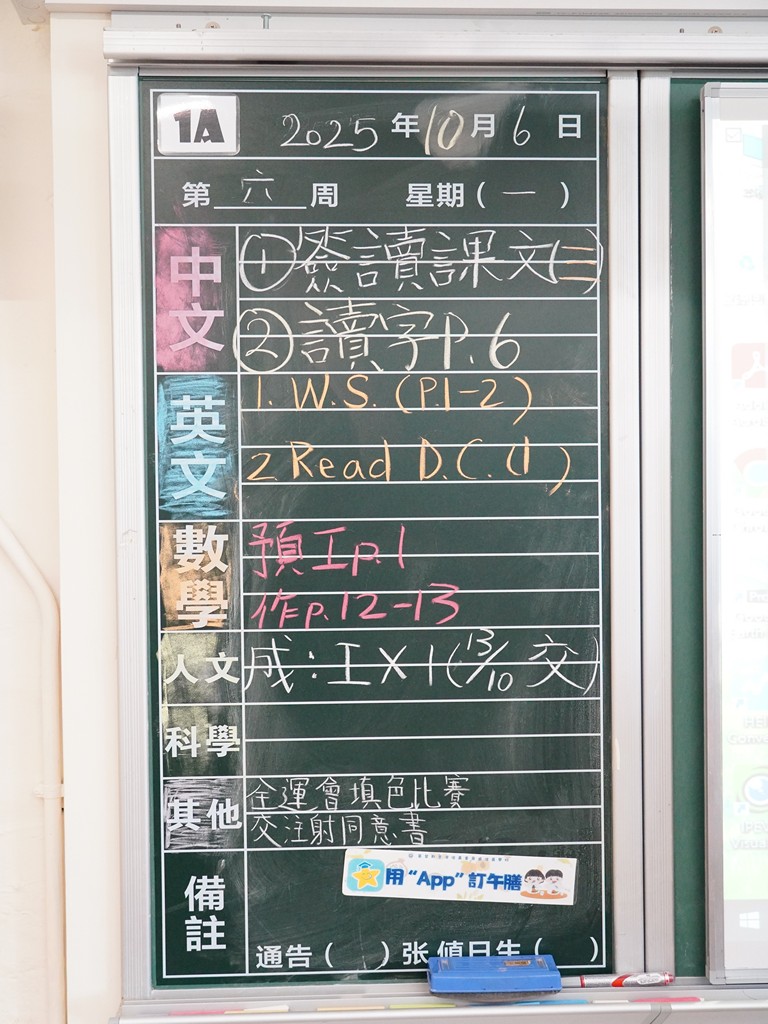 1A 2025年10月6日
第 六 周 星期(一)
中文
①簽讀課文(三)
②讀字P.6
英文
1. W.S. (P.1-2)
2. Read D.C.(1)
數學
預工p.1
作p.12-13
人文
成:工X1(13/10 交)
科學
其他
全運會填色比賽
交注射同意書
備註
用“App”訂午膳
通告( )张 值日生( )